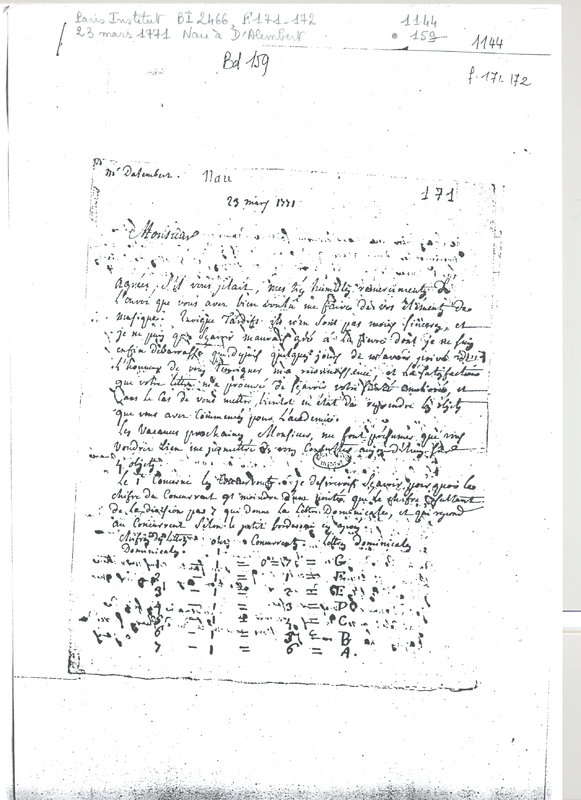 Paris Institut BI 2466, f. 171-172
1144
23 mars 1771 Nau à D'Alembert
159
1144
Bd 159
f. 171. 172
Mr Dalembert. Nau
171
23 mars 1771
Monsieur
Agréez, s'il vous plait, mes très humbles remerciements de
l'envoi que vous avez bien voulu me faire de vos Élements de
musique. Quoique tardifs ils n'en sont pas moins sincères, et
je ne puis que sçavoir mauvais gré à la fievre dont je ne suis
enfin débarrassé que depuis quelques jours de m'avoir privé de
l'honneur de vous temoigner ma reconnoissance, et la satisfaction
que votre lettre m'a procuré de sçavoir votre santé améliorée, et
dans le cas de vous mettre bientot en état de reprendre les objets
que vous avez commencés pour l'academie.
Les vacances prochaines, Monsieur, me font présumer que vous
voudrez bien me permettre de vous consulter
objets
Le 1er concerne les Concurrents: je desirerois sçavoir pourquoi le
chifre du Concurrent est moindre d'une unité que le chifre résultant
de la division par 7 qui donne la lettre Dominicale, et qui repond
au Concurrent selon le petit bordereau cy apres
Chifres des lettres Concurrents. lettres Dominicales
Dominicales.
1 = 0 = 7 = G.
2 - 1 = 1 = F.
3 - 1 = 2 = E.
4 - 1 = 3 = D
5 - 1 = 4 = C.
6 - 1 = 5 = B
7 - 1 = 6 = A.